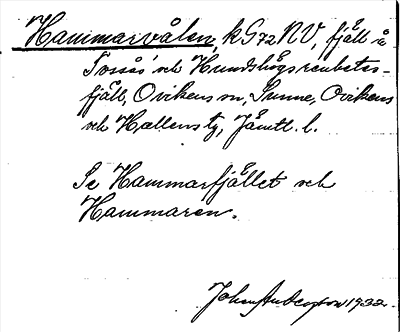 Hammarvålen, k G72NV, fjäll å
Torsås och Hundshögsrenbetes-
fjäll, Ovikens sn, Sunne, Ovikens
och Hallens tg, Jämtl. l.
Se Hammarfjället och
Hammaren.
John Anderzon 1932.